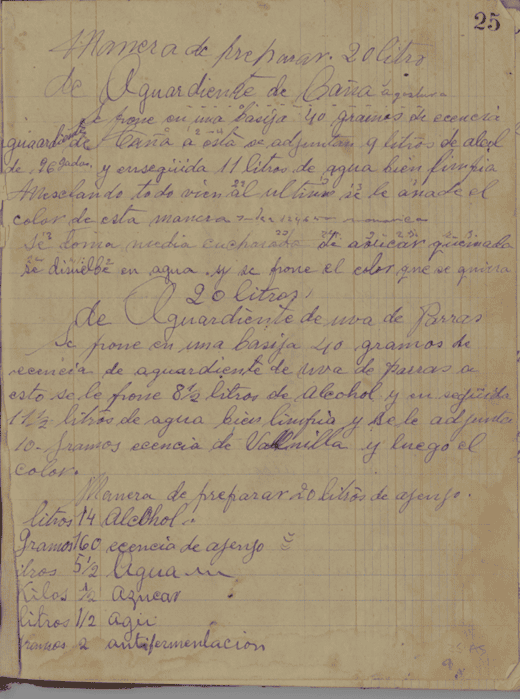 25
Manera de preparar 20 litro
de Aguardiente de Caña
se pone en una basija 40 gramos de ecencia
aguardiente de Caña a esta se adjuntan 9 litros de alcol
de 96 gados. y enseguida 11 litros de agua bien limpia
Mesclando todo vien al ultimo se le añade el
color de esta manera
Se toma media cucharada de asucar quemada
se disuelbe en agua y se pone el color que se quiera
20 litros
de Aguardiente de uva de Parras
se pone en una basija 40 gramos de
ecencia de aguardiente de uva de parras a
esto se le pone 8 1/2 litros de Alcohol y en següida
11 1/2 litros de agua bien limpia y se le adjunta
10- gramos ecencia de Vainilla y luego el
color.
Manera de preparar 20 litros de ajenjo.
litros 14 Alcohol.
Gramos 160 ecencia de ajenjo
itros 5 1/2 Agua
Kilos 1/2 Azucar
litros 1/2
ramos 2 antifermentacion